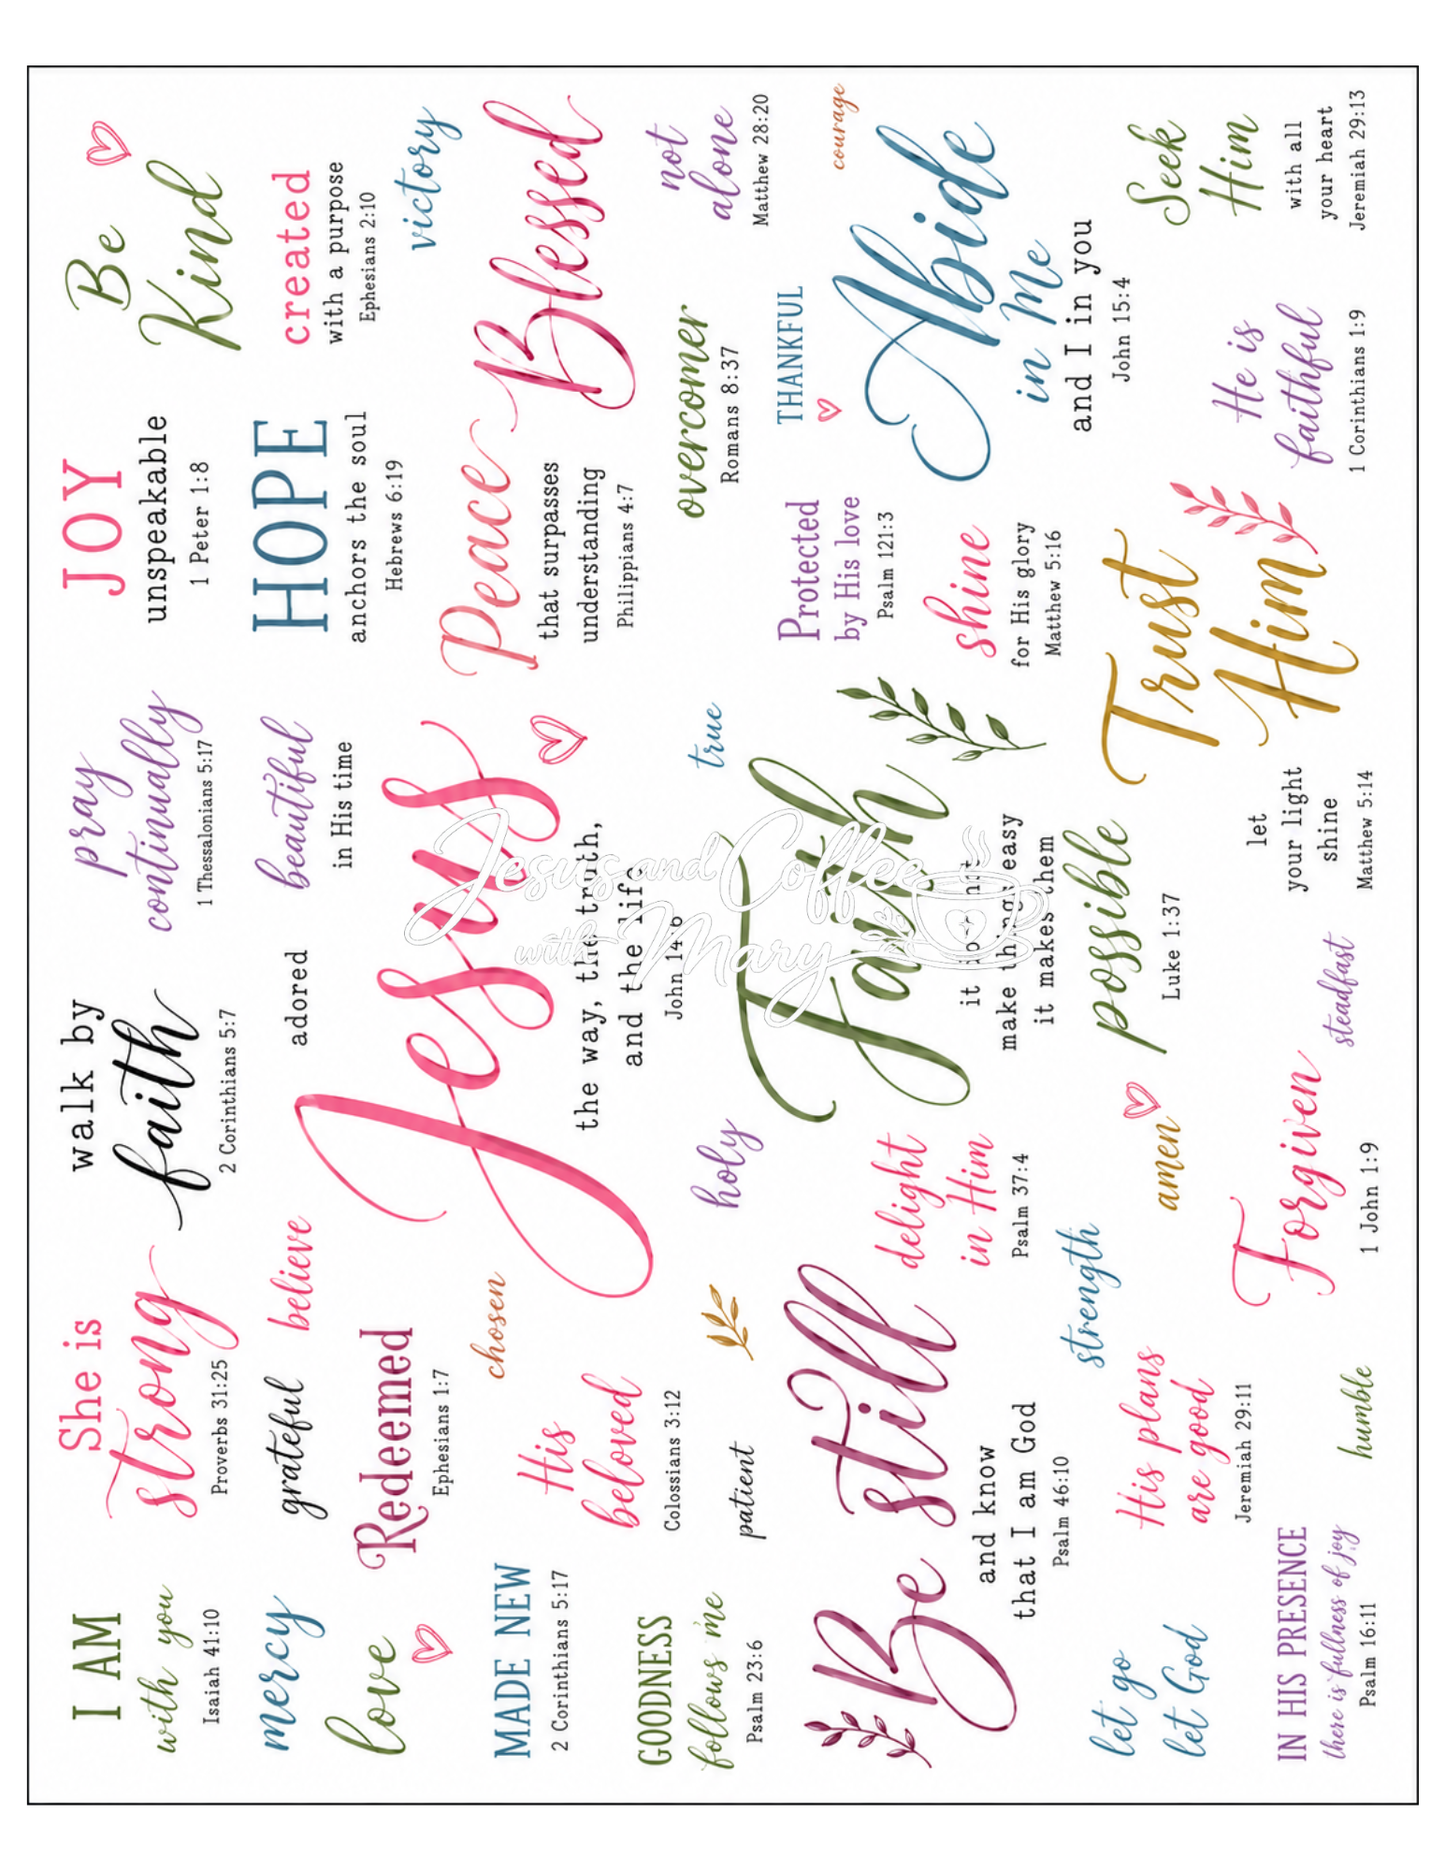 I AM
with you
Isaiah 41:10
She is
strong
Proverbs 31:25
walk by
faith
2 Corinthians 5:7
pray
continually
1 Thessalonians 5:17
JOY
unspeakable
1 Peter 1:8
Be
Kind
mercy
love
grateful
believe
adored
beautiful
in His time
HOPE
anchors the soul
Hebrews 6:19
created
with a purpose
Ephesians 2:10
victory
Redeemed
Ephesians 1:7
Jesus
the way, the truth,
and the life
John 14:6
Peace
that surpasses
understanding
Philippians 4:7
Blessed
MADE NEW
2 Corinthians 5:17
chosen
His
beloved
Colossians 3:12
GOODNESS
follows me
Psalm 23:6
patient
holy
true
overcomer
Romans 8:37
not
alone
Matthew 28:20
Be still
and know
that I am God
Psalm 46:10
delight
in Him
Psalm 37:4
Faith
it does not
make things easy
it makes them
possible
Luke 1:37
Jesus and Coffee
with Mary
Protected
by His love
Psalm 121:3
THANKFUL
courage
shine
for His glory
Matthew 5:16
Abide
in Me
and I in you
John 15:4
let go
let God
His plans
are good
Jeremiah 29:11
strength
amen
Trust
Him
Seek
Him
with all
your heart
Jeremiah 29:13
He is
faithful
1 Corinthians 1:9
IN HIS PRESENCE
there is fullness of joy
Psalm 16:11
humble
Forgiven
1 John 1:9
steadfast
let
your light
shine
Matthew 5:14